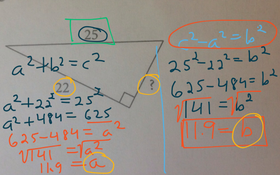 25
22
?
a² + b² = c²
a² + 22² = 25²
a² + 484 = 625
625 - 484 = a²
√141 = √a²
11.9 = a
c² - a² = b²
25² - 22² = b²
625 - 484 = b²
√141 = √b²
11.9 = b